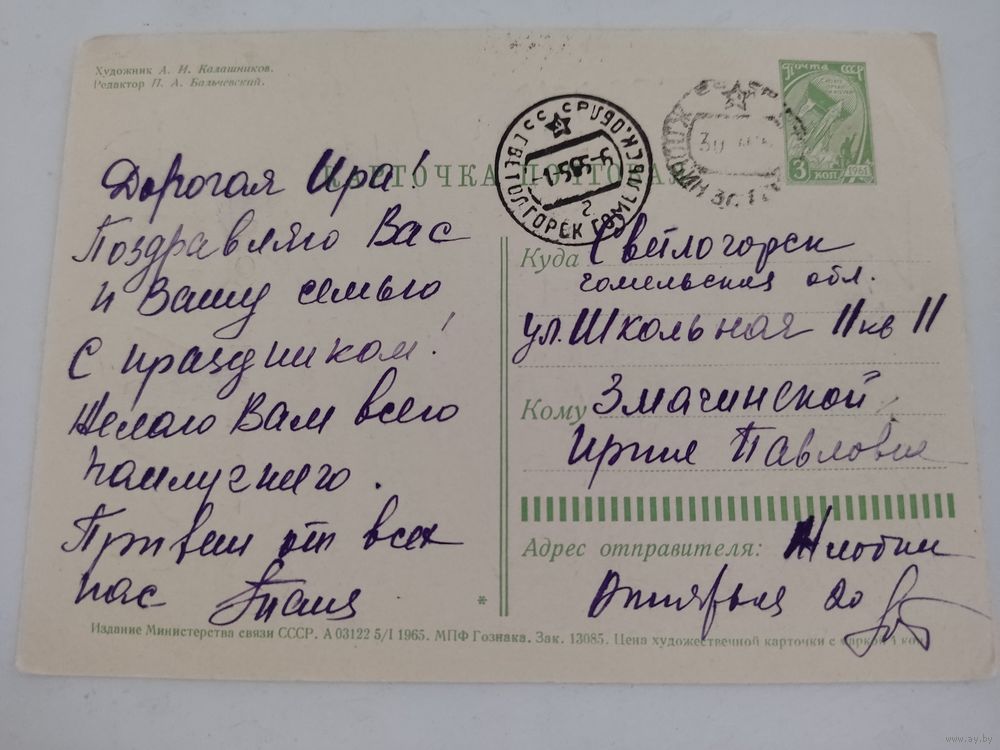 Художник А. И. Калашников.
Редактор П. А. Бальчевский.
Почта СССР
3 коп
1961
КАРТОЧКА ПОЧТОВАЯ
Дорогая Ира!
Поздравляю Вас
и Вашу семью
с праздником!
Желаю Вам всего
наилучшего.
Привет от всех
нас Таня
СВЕТЛОГОРСК ГОМЕЛЬСК. ОБЛ.
-1.5.65-
2
30
Куда Светлогорск
гомельская обл.
ул. Школьная 11 кв 11
Кому Змачинской
Ирине Павловне
Адрес отправителя: Жлобин
Октябрьская 20
*
Издание Министерства связи СССР. А 03122 5/I 1965. МПФ Гознака. Зак. 13085. Цена художественной карточки с маркой 4 коп.
www.ay.by